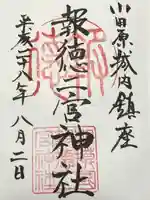 小田原城内鎮座
報徳二宮神社
平成二十八年八月二日